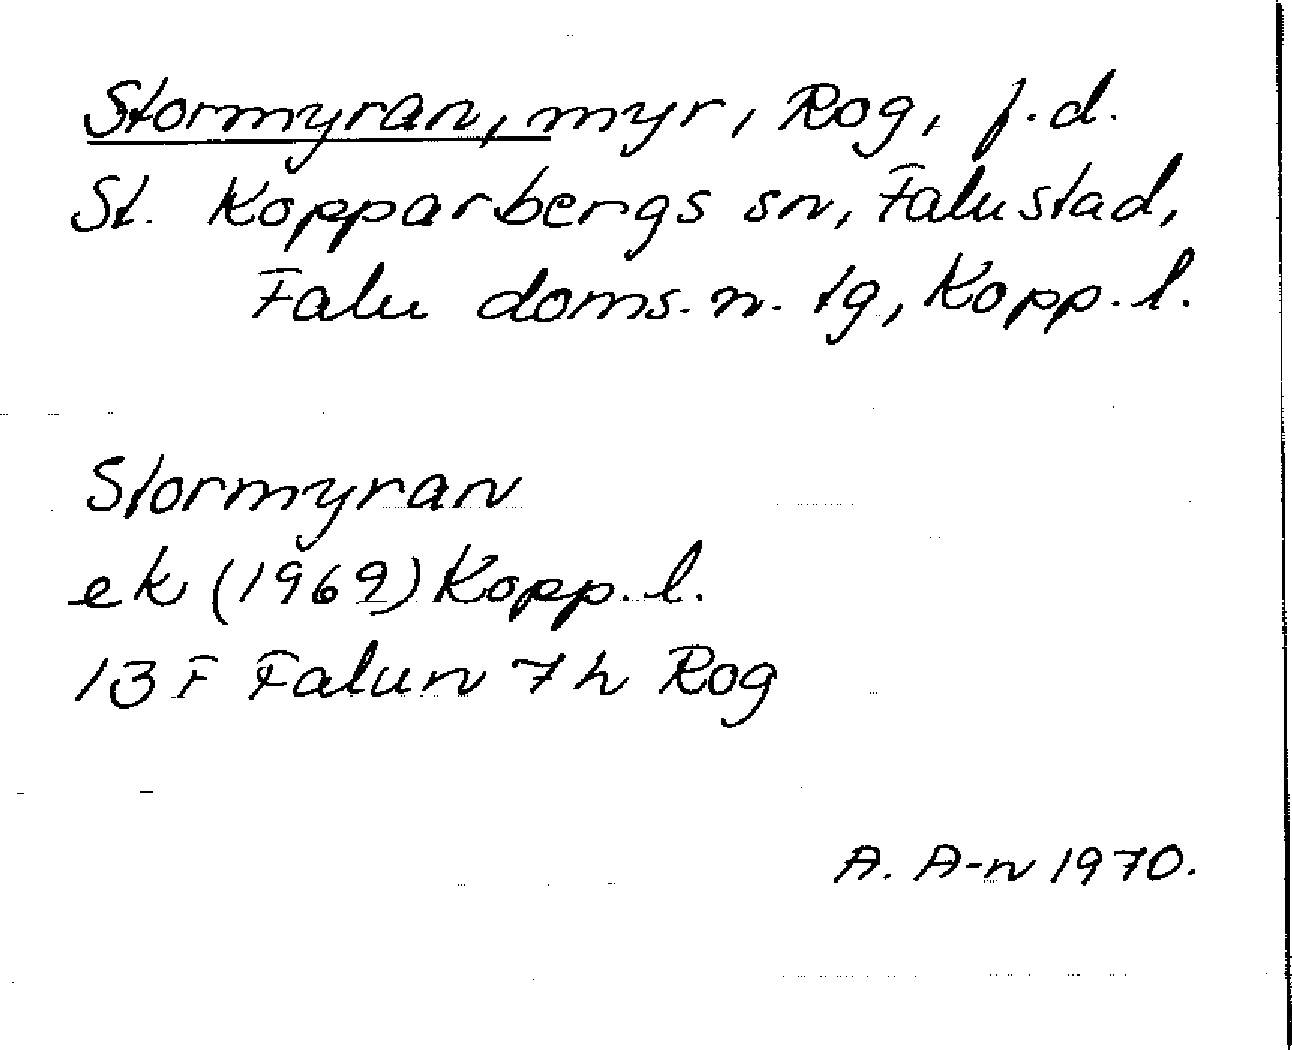 Stormyran, myr, Rog, f.d.
St. Kopparbergs sn, Falu stad,
Falu doms. n. tg, Kopp. l.
Stormyran
ek (1969) Kopp. l.
13 F Falun 7 h Rog
A. A-n 1970.